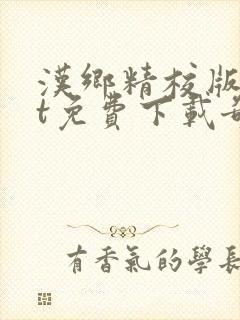 漢鄉精校版
t免費下載
有香氣的學長